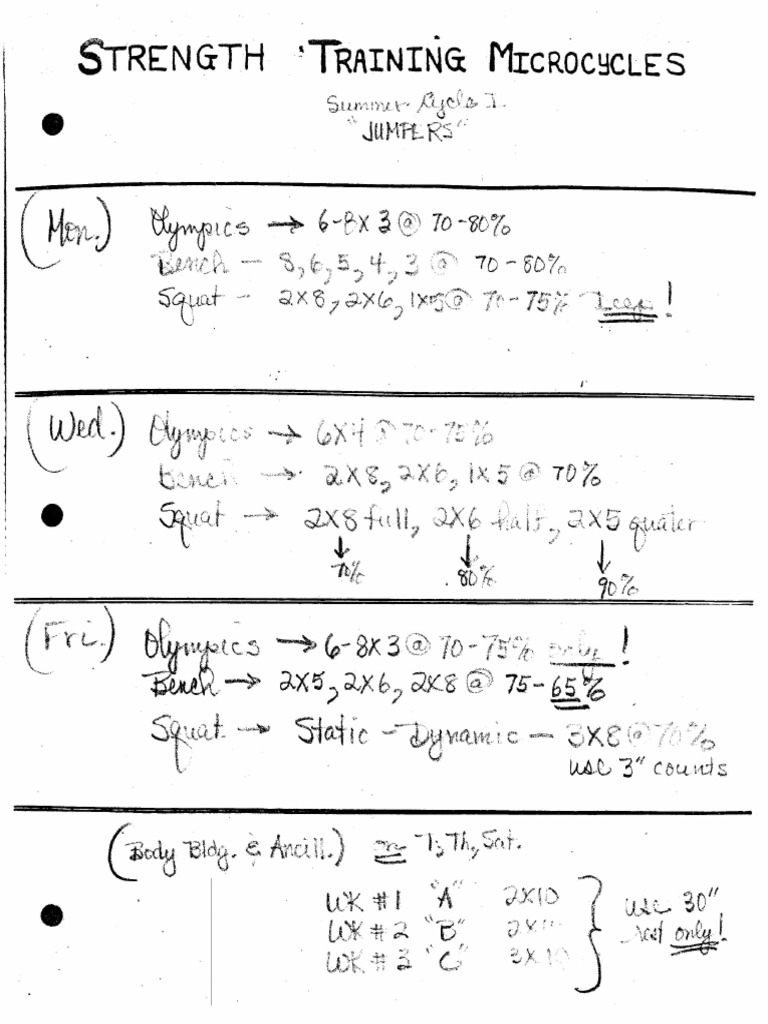 STRENGTH TRAINING MICROCYCLES
Summer Cycle I.
"JUMPERS"
(Mon.) Olympics → 6-8x3 @ 70-80%
Bench - 8, 6, 5, 4, 3 @ 70-80%
Squat - 2x8, 2x6, 1x5 @ 70-75% Deep!
(Wed.) Olympics → 6x4 @ 70-75%
Bench → 2x8, 2x6, 1x5 @ 70%
Squat → 2x8 full, 2x6 half, 2x5 quater
↓ ↓ ↓
70% 80% 90%
(Fri.) Olympics → 6-8x3 @ 70-75% only!
Bench → 2x5, 2x6, 2x8 @ 75-65%
Squat → Static - Dynamic - 3x8 @ 70%
use 3" counts
(Body Bldg. & Ancill.) on T, Th, Sat.
WK #1 "A" 2x10
WK #2 "B" 2x
WK #3 "C" 3x10
use 30"
rest only!